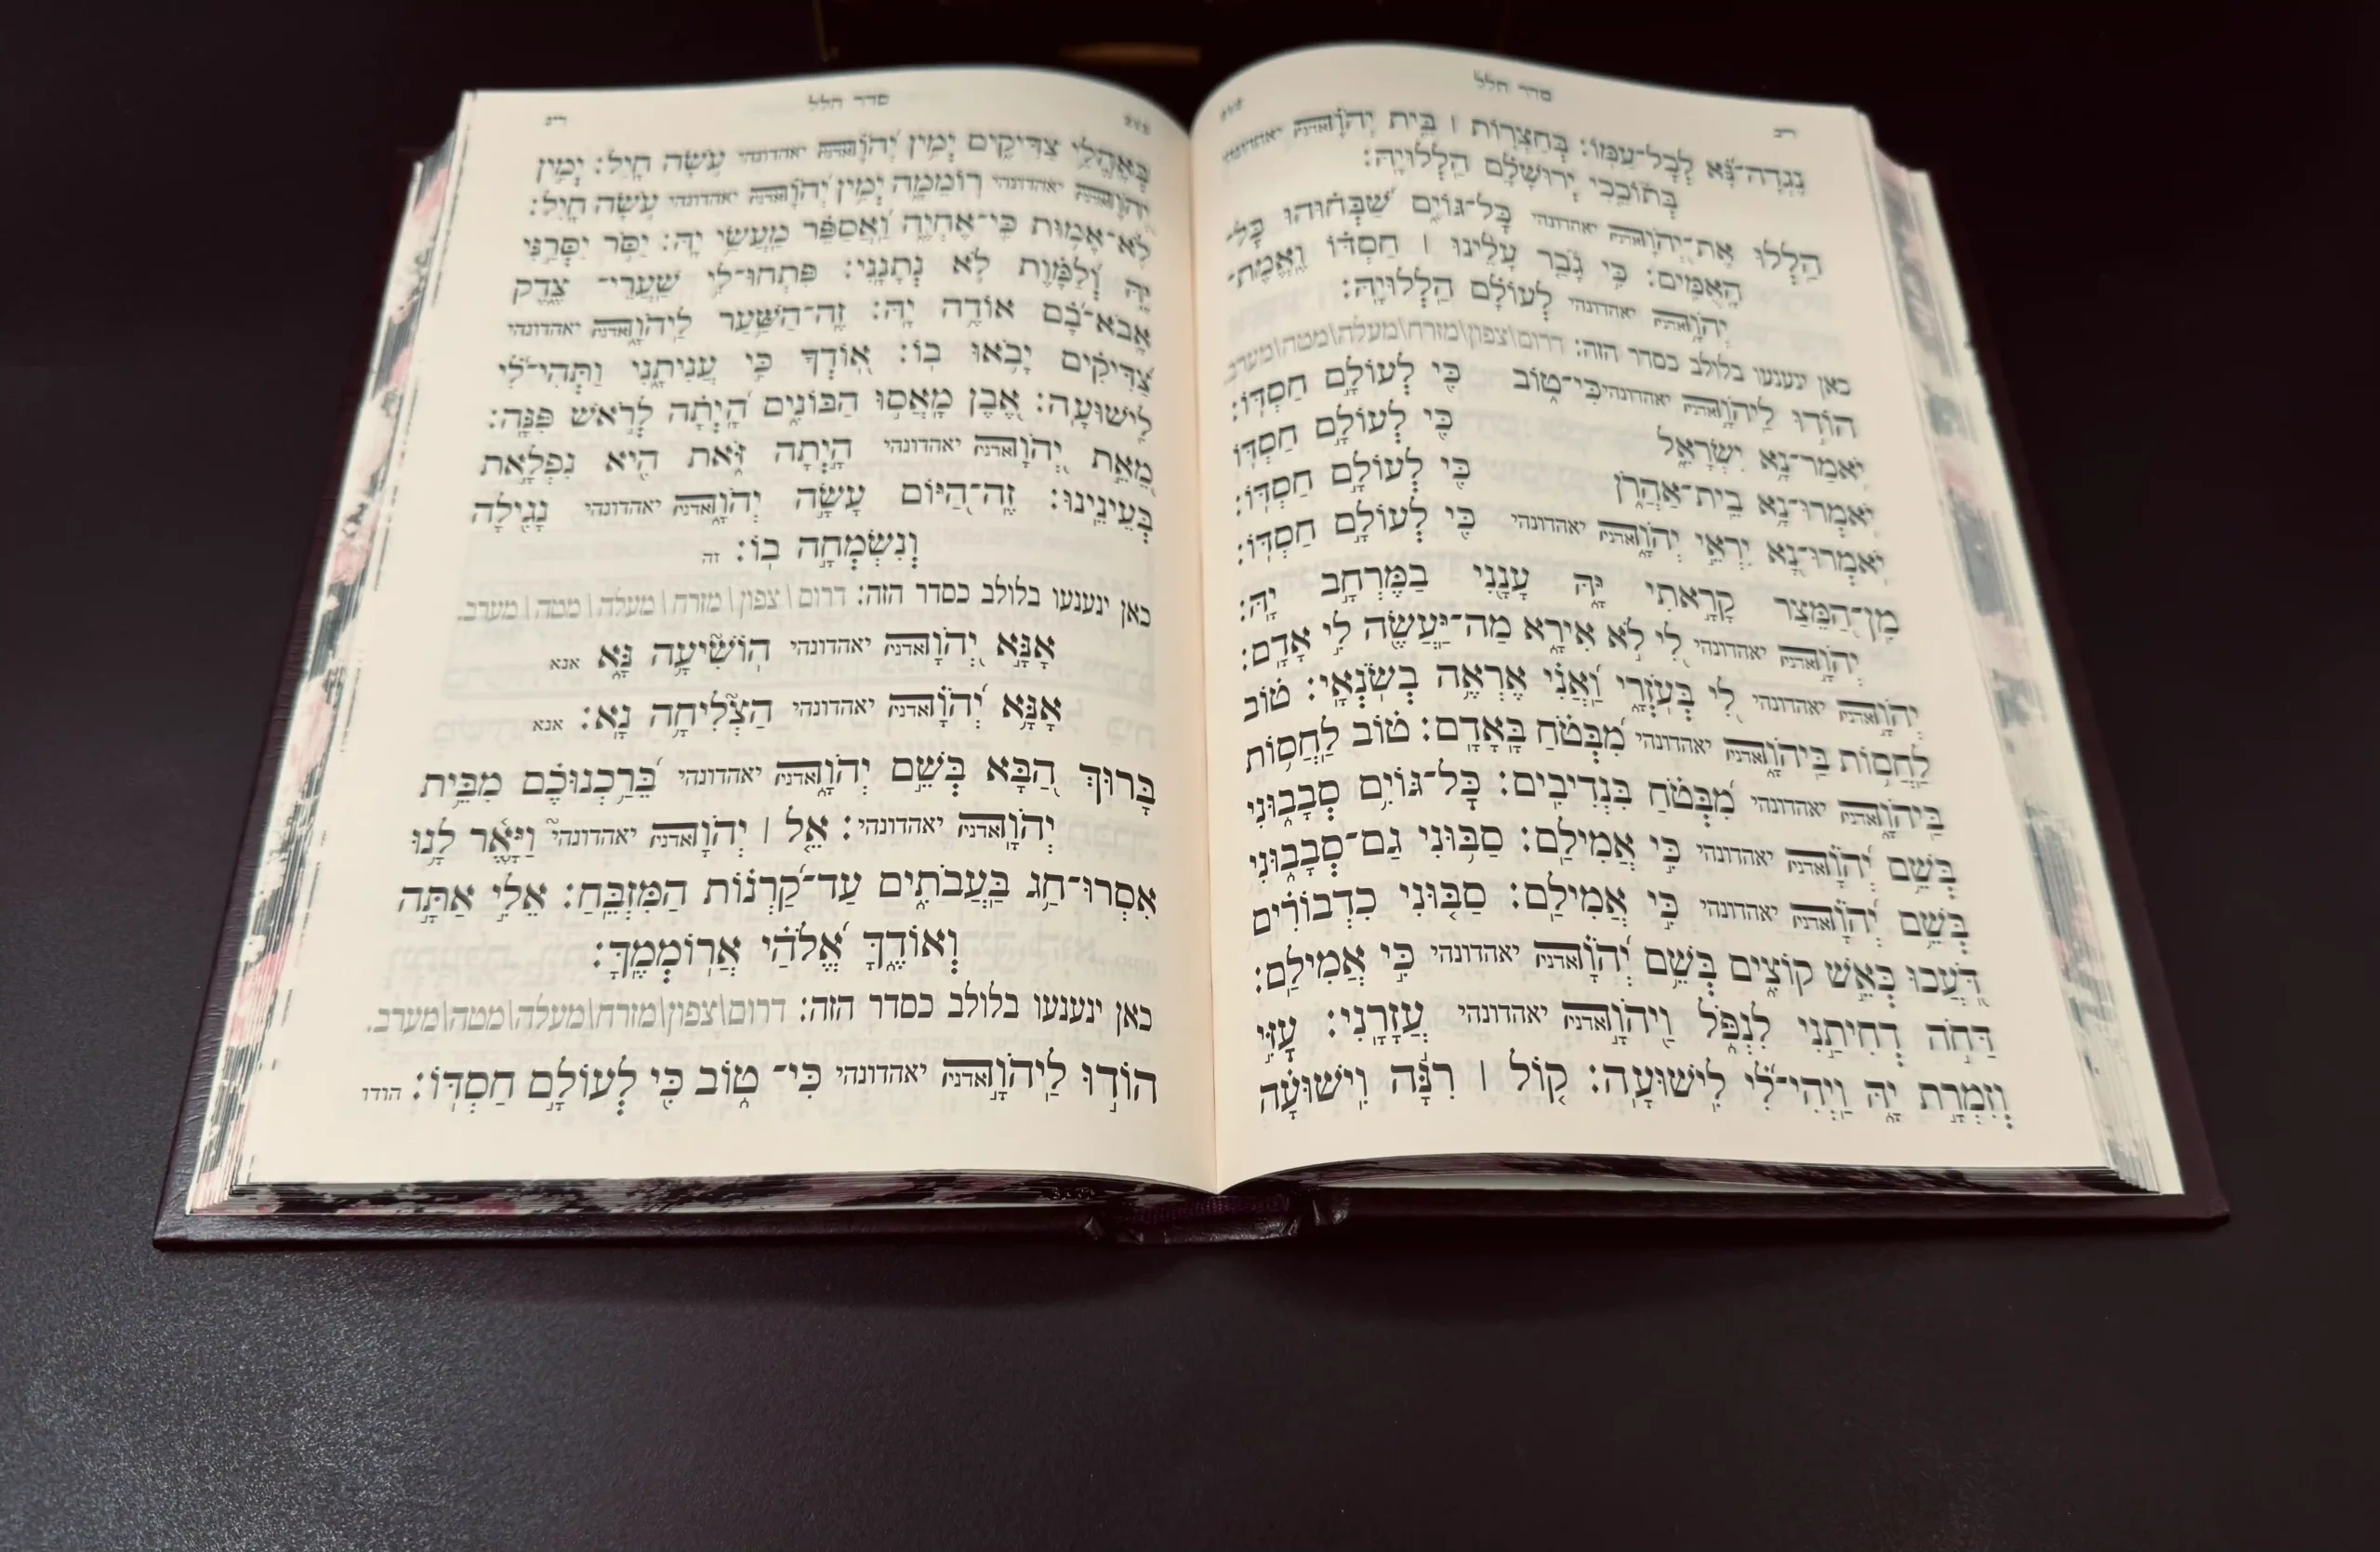 סדר הלל
נֶגְדָה־נָּא לְכָל־עַמּוֹ: בְּחַצְרוֹת ׀ בֵּית יְהֹוָה אדני יאהדונהי
בְּתוֹכֵכִי יְרוּשָׁלִָם הַלְלוּיָהּ:
הַלְלוּ אֶת־יְהֹוָה אדני יאהדונהי כָּל־גּוֹיִם שַׁבְּחוּהוּ כָּל־
הָאֻמִּים: כִּי גָבַר עָלֵינוּ ׀ חַסְדּוֹ וֶאֱמֶת־
יְהֹוָה אדני יאהדונהי לְעוֹלָם הַלְלוּיָהּ:
כאן ינענעו בלולב כסדר הזה: דרום\צפון\מזרח\מעלה\מטה\מערב
הוֹדוּ לַיהֹוָה אדני יאהדונהי כִּי־טוֹב כִּי לְעוֹלָם חַסְדּוֹ:
יֹאמַר־נָא יִשְׂרָאֵל כִּי לְעוֹלָם חַסְדּוֹ
יֹאמְרוּ־נָא בֵית־אַהֲרֹן כִּי לְעוֹלָם חַסְדּוֹ:
יֹאמְרוּ־נָא יִרְאֵי יְהֹוָה אדני יאהדונהי כִּי לְעוֹלָם חַסְדּוֹ:
מִן־הַמֵּצַר קָרָאתִי יָּהּ עָנָנִי בַמֶּרְחָב יָהּ:
יְהֹוָה אדני יאהדונהי לִי לֹא אִירָא מַה־יַּעֲשֶׂה לִי אָדָם:
יְהֹוָה אדני יאהדונהי לִי בְּעֹזְרָי וַאֲנִי אֶרְאֶה בְשֹׂנְאָי: טוֹב
לַחֲסוֹת בַּיהֹוָה אדני יאהדונהי מִבְּטֹחַ בָּאָדָם: טוֹב לַחֲסוֹת
בַּיהֹוָה אדני יאהדונהי מִבְּטֹחַ בִּנְדִיבִים: כָּל־גּוֹיִם סְבָבוּנִי
בְּשֵׁם יְהֹוָה אדני יאהדונהי כִּי אֲמִילַם: סַבּוּנִי גַם־סְבָבוּנִי
בְּשֵׁם יְהֹוָה אדני יאהדונהי כִּי אֲמִילַם: סַבּוּנִי כִדְבוֹרִים
דֹּעֲכוּ כְּאֵשׁ קוֹצִים בְּשֵׁם יְהֹוָה אדני יאהדונהי כִּי אֲמִילַם:
דַּחֹה דְחִיתַנִי לִנְפֹּל וַיהֹוָה אדני יאהדונהי עֲזָרָנִי: עָזִּי
וְזִמְרָת יָהּ וַיְהִי־לִי לִישׁוּעָה: קוֹל ׀ רִנָּה וִישׁוּעָה
סדר הלל
בְּאָהֳלֵי צַדִּיקִים יְמִין יְהֹוָה אדני יאהדונהי עֹשָׂה חָיִל: יְמִין
יְהֹוָה אדני יאהדונהי רוֹמֵמָה יְמִין יְהֹוָה אדני יאהדונהי עֹשָׂה חָיִל:
לֹא־אָמוּת כִּי־אֶחְיֶה וַאֲסַפֵּר מַעֲשֵׂי יָהּ: יַסֹּר יִסְּרַנִּי
יָּהּ וְלַמָּוֶת לֹא נְתָנָנִי: פִּתְחוּ־לִי שַׁעֲרֵי־ צֶדֶק
אָבֹא־בָם אוֹדֶה יָהּ: זֶה־הַשַּׁעַר לַיהֹוָה אדני יאהדונהי
צַדִּיקִים יָבֹאוּ בוֹ: אוֹדְךָ כִּי עֲנִיתָנִי וַתְּהִי־לִי
לִישׁוּעָה: אֶבֶן מָאֲסוּ הַבּוֹנִים הָיְתָה לְרֹאשׁ פִּנָּה:
מֵאֵת יְהֹוָה אדני יאהדונהי הָיְתָה זֹּאת הִיא נִפְלָאת
בְּעֵינֵינוּ: זֶה־הַיּוֹם עָשָׂה יְהֹוָה אדני יאהדונהי נָגִילָה
וְנִשְׂמְחָה בוֹ: זה
כאן ינענעו בלולב כסדר הזה: דרום\ צפון\ מזרח\ מעלה\ מטה\ מערב.
אָנָּא יְהֹוָה אדני יאהדונהי הוֹשִׁיעָה נָּא אנא
אָנָּא יְהֹוָה אדני יאהדונהי הַצְלִיחָה נָא: אנא
בָּרוּךְ הַבָּא בְּשֵׁם יְהֹוָה אדני יאהדונהי בֵּרַכְנוּכֶם מִבֵּית
יְהֹוָה אדני יאהדונהי: אֵל ׀ יְהֹוָה אדני יאהדונהי וַיָּאֶר לָנוּ
אִסְרוּ־חַג בַּעֲבֹתִים עַד־קַרְנוֹת הַמִּזְבֵּחַ: אֵלִי אַתָּה
וְאוֹדֶךָּ אֱלֹהַי אֲרוֹמְמֶךָּ:
כאן ינענעו בלולב כסדר הזה: דרום\צפון\מזרח\מעלה\מטה\מערב.
הוֹדוּ לַיהֹוָה אדני יאהדונהי כִּי־ טוֹב כִּי לְעוֹלָם חַסְדּוֹ: הודו